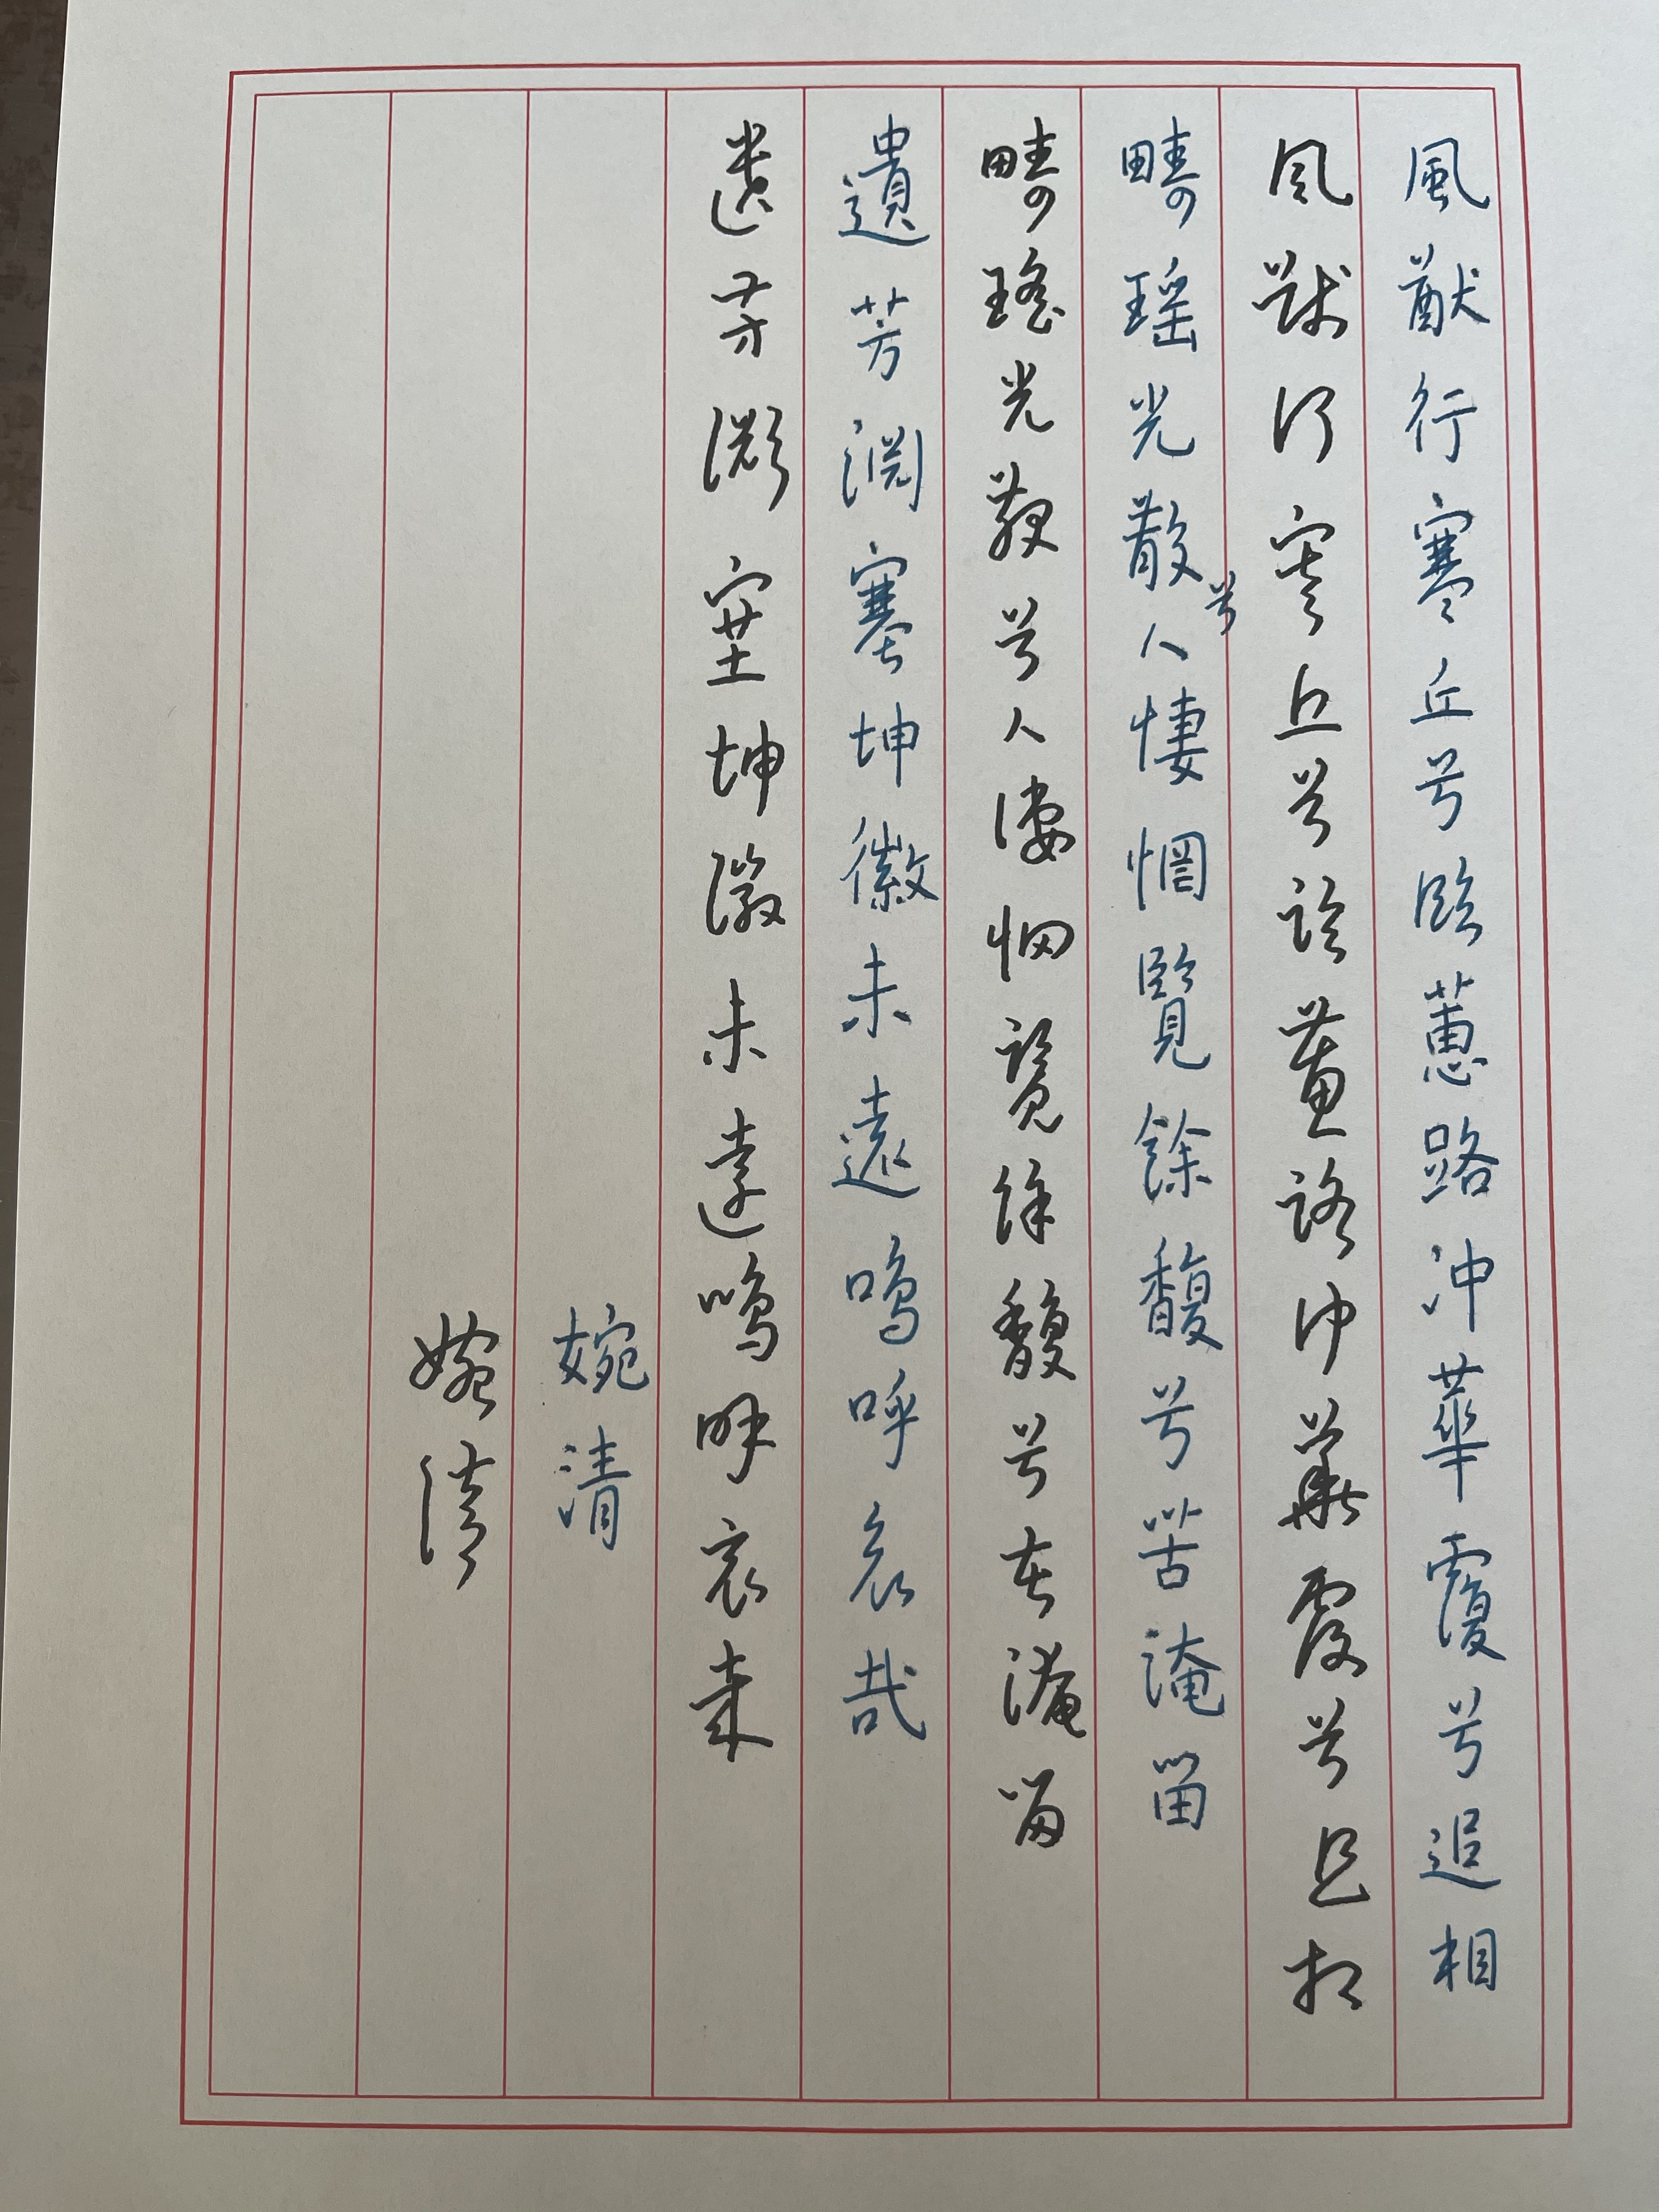 風猷行寒丘兮臨蕙路沖華覆兮追相
風猷行寒丘兮臨蕙路沖華覆兮追相
疇瑶光散兮人悽惘覽餘馥兮苦淹留
疇瑶光散兮人悽惘覽餘馥兮苦淹留
遺芳淵塞坤徽未遠嗚呼哀哉
遺芳淵塞坤徽未遠嗚呼哀哉
婉清
婉清